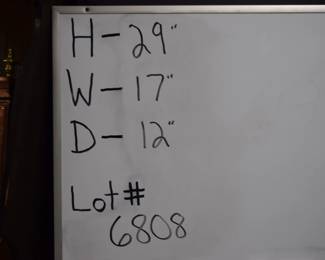 H-29"
W-17"
D-12"
Lot#
6808